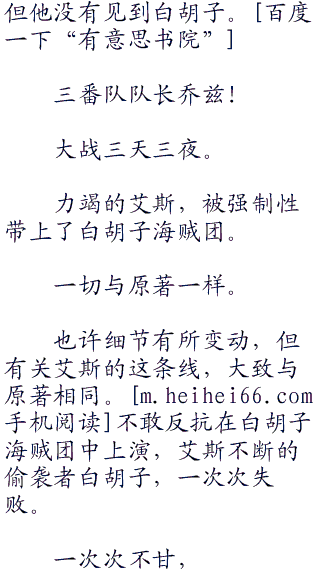 但他没有见到白胡子。[百度
一下“有意思书院”]
三番队队长乔兹!
大战三天三夜。
力竭的艾斯，被强制性
带上了白胡子海贼团。
一切与原著一样。
也许细节有所变动，但
有关艾斯的这条线，大致与
原著相同。[m.heihei66.com
手机阅读]不敢反抗在白胡子
海贼团中上演，艾斯不断的
偷袭者白胡子，一次次失
败。
一次次不甘，